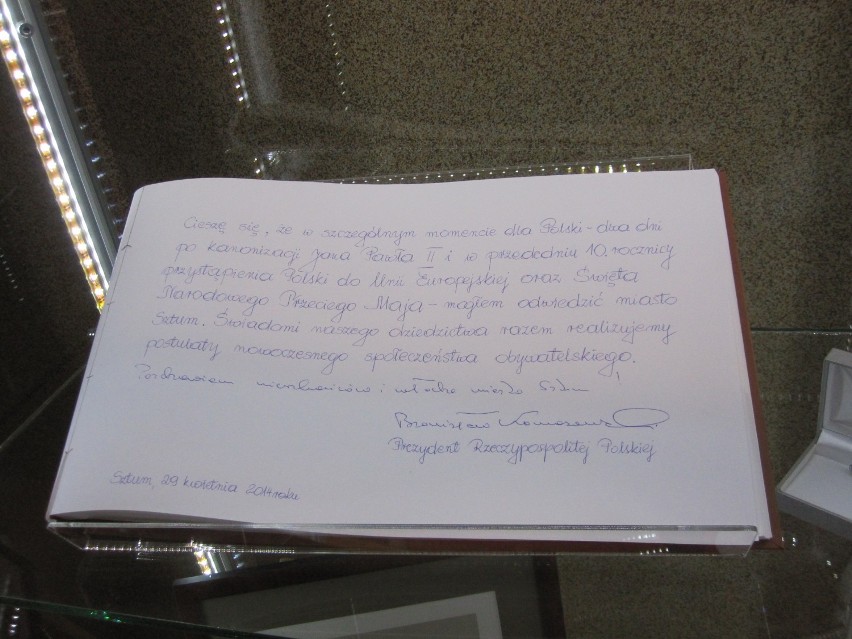 Cieszę się, że w szczególnym momencie dla Polski - dwa dni
po kanonizacji Jana Pawła II i w przededniu 10. rocznicy
przystąpienia Polski do Unii Europejskiej oraz Święta
Narodowego Trzeciego Maja - mogłem odwiedzić miasto
Sztum. Świadomi naszego dziedzictwa razem realizujemy
postulaty nowoczesnego społeczeństwa obywatelskiego.
Pozdrawiam mieszkańców i władze miasta Sztum!
Bronisław Komorowski
Prezydent Rzeczypospolitej Polskiej
Sztum, 29 kwietnia 2014 roku